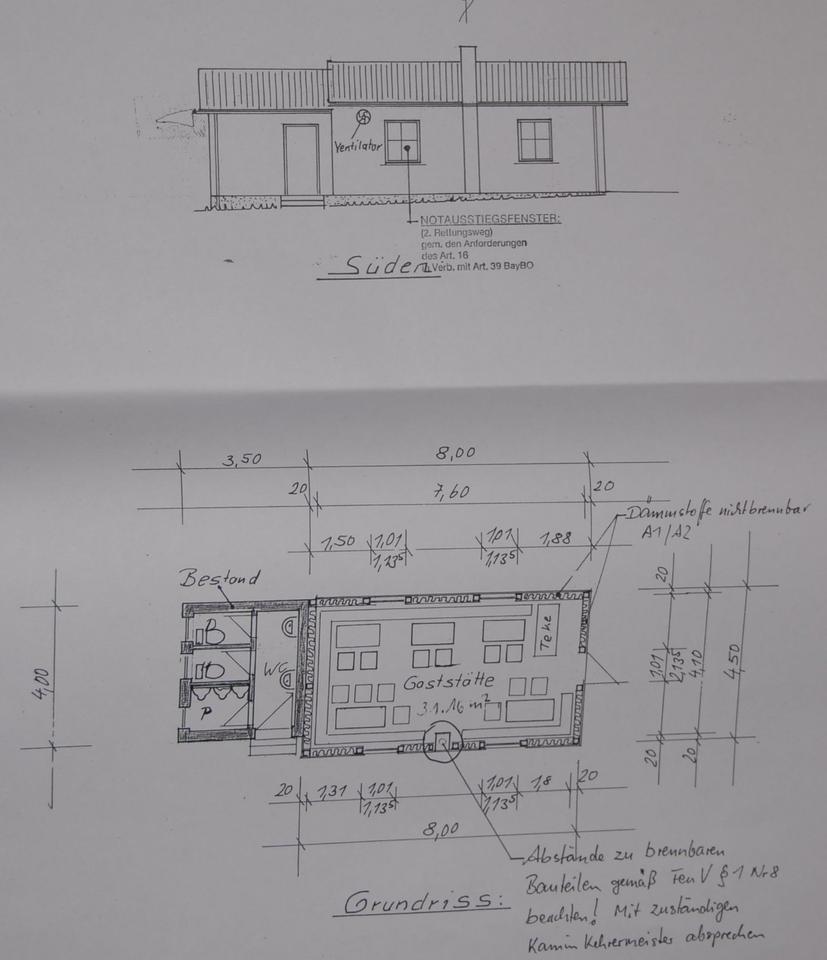 Ventilator
NOTAUSSTIEGSFENSTER:
(2. Rettungsweg)
gem. den Anforderungen
des Art. 16
i. Verb. mit Art. 39 BayBO
Süden
3,50
8,00
20
7,60
20
1,50
1,01
1,13⁵
1,01
1,13⁵
1,88
Dämmstoffe nichtbrennbar
A1/A2
Bestand
WC
P
Teke
Gaststätte
31.16 m²
4,00
20
1,01
2,13⁵
4,10
4,50
20
20
20
1,31
1,01
1,13⁵
1,01
1,13⁵
1,8
20
8,00
Abstände zu brennbaren
Bauteilen gemäß FeuV § 1 Nr 8
beachten! Mit zuständigen
Kamin Kehrermeister absprechen
Grundriss: